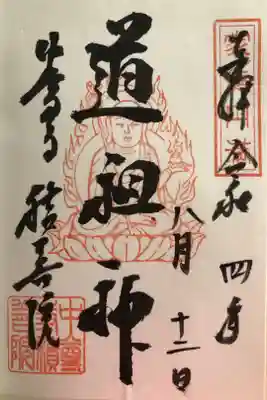 奉拝 令和四年
八月十二日
道祖神
中尊寺 積善院